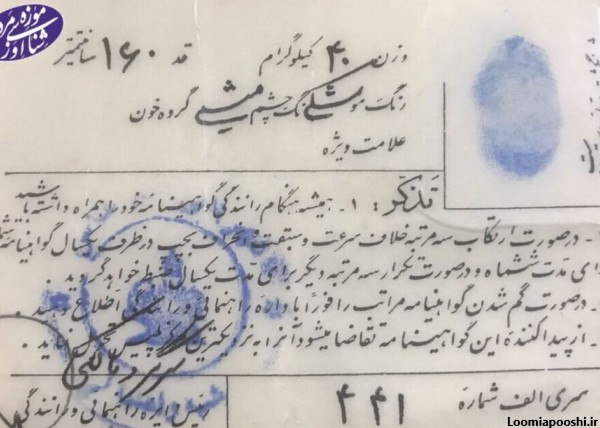 موزه مردم شناسی
وزن ۴۰ کیلوگرم قد ۱۶۰ سانتیمتر
رنگ مو مشکی رنگ چشم میشی گروه خون
علامت ویژه
تذکر: ۱ - همیشه هنگام رانندگی گواهینامه خود را همراه داشته باشید
- در صورت ارتکاب سه مرتبه خلاف سرعت و سبقت و انحراف بچپ در ظرف یکسال گواهینامه شما
برای مدت ششماه و در صورت تکرار سه مرتبه دیگر برای مدت یکسال ضبط خواهد گردید.
- در صورت گم شدن گواهینامه مراتب را فوراً باداره راهنمائی و رانندگی اطلاع دهید.
- از پیدا کننده این گواهینامه تقاضا میشود آنرا به نزدیکترین مرکز پلیس تحویل نماید.
سری الف شماره ۴۴۱
رئیس اداره راهنمائی و رانندگی
Loomiapooshi.ir